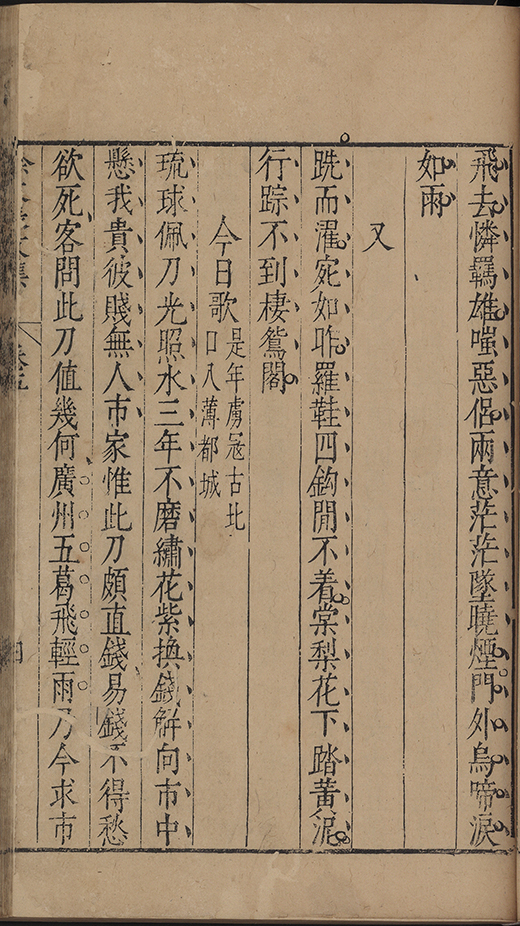 飛去憐羈雄嗤惡侶兩意茫茫墜曉煙門外烏啼淚
如雨
又
跣而濯宛如昨羅鞋四鈎閒不着棠梨花下踏黃泥
行踪不到棲鴛閣
今日歌
是年虜冦古北
口入薄都城
琉球佩刀光照水三年不磨繡花紫換錢解向市中
懸我貴彼賤無人市家惟此刀頗直錢易錢不得愁
欲死客問此刀值幾何廣州五葛飛輕雨乃今求市
集
卷五